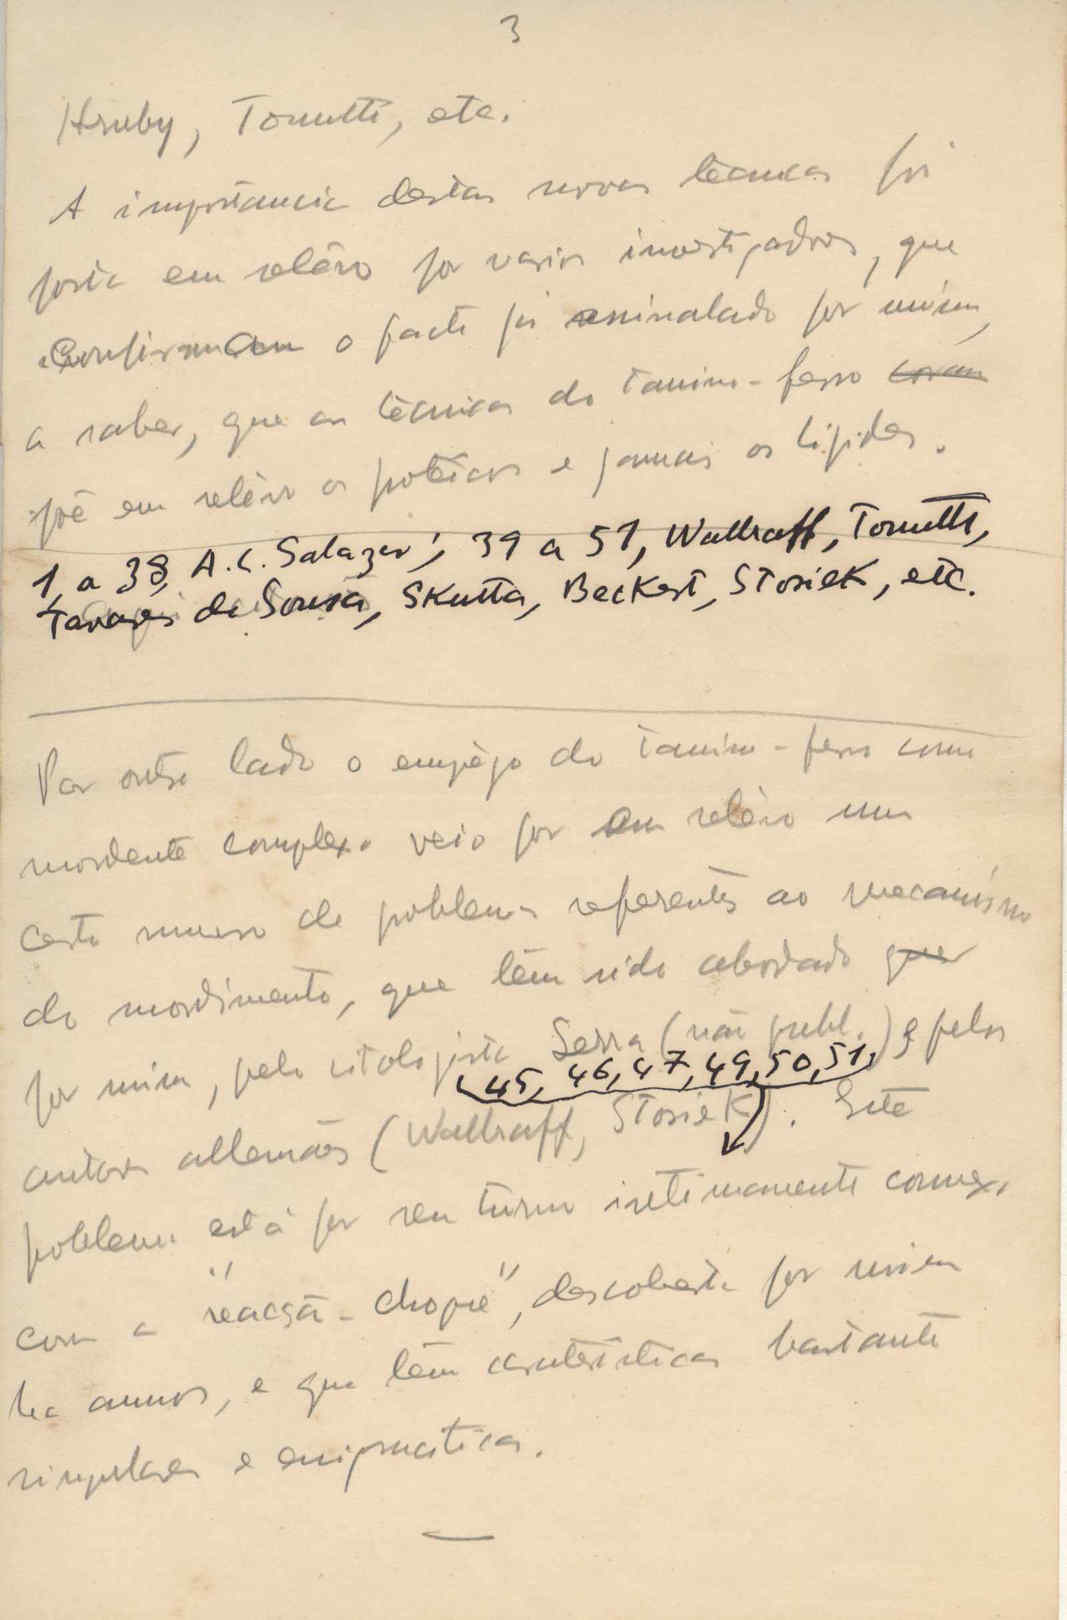 3
Hruby, Tonutti, etc.
A importancia destas novas técnicas foi
posta em relêvo por varios investigadores, que
confirmam o facto já assinalado por mim,
a saber, que as técnicas do tanino-ferro coram
põe em relêvo os proteicos e jamais os lipides.
1 a 38, A. L. Salazar; 39 a 51, Wallraff, Tonutti,
Tavares de Sousa, Skutta, Beckert, Stosiek, etc.
Por outro lado o emprêgo do tanino-ferro como
mordente complexo veio por em relêvo um
certo numero de problemas referentes ao mecanismo
do mordimento, que têm sido abordado quer
por mim, pelo citologista Serra (não publ.) e pelos
45, 46, 47, 49, 50, 51,
autores allemães (Wallraff, Stosiek). Este
problema está por seu turno intimamente connexo
com a "reacção-chopre", descoberta por mim
ha annos, e que têm caracteristicas bastante
singulares e enigmaticas.